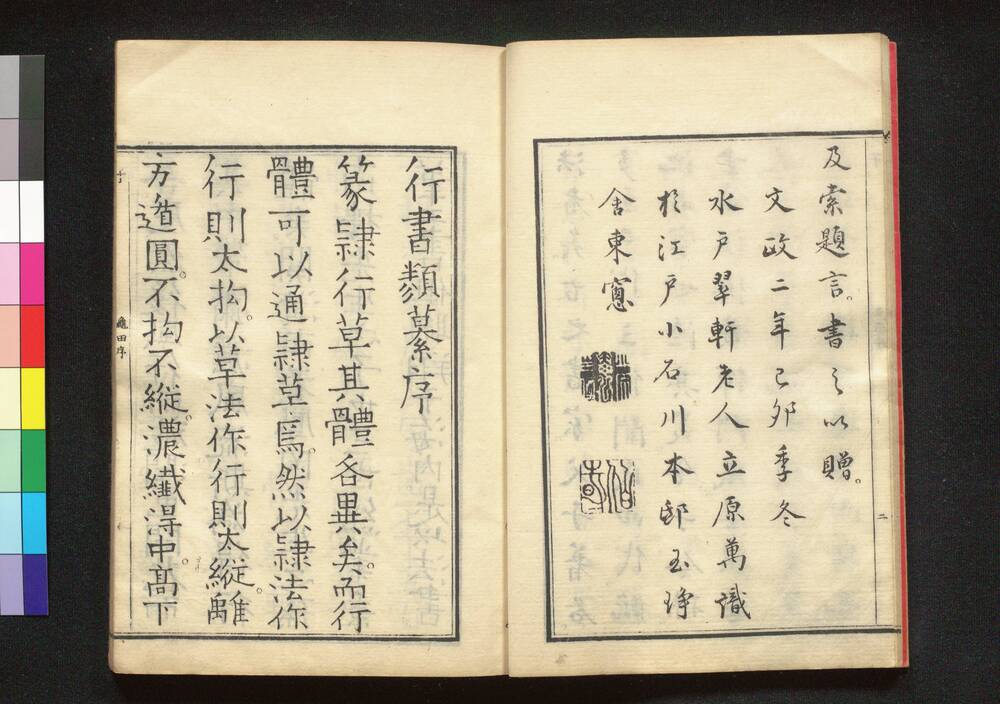 及索題言。書之以贈。
文政二年己夘季冬
水戶翠軒老人立原萬識
於江戶小石川本邸玉琤
舍東窻
二
行書類纂序
篆隷行草其體各異矣。而行
體可以通隷草焉。然以隷法作
行則太拘。以草法作行則太縱。雖
方遒圓。不拘不縱。濃纖得中。高下
龜田序